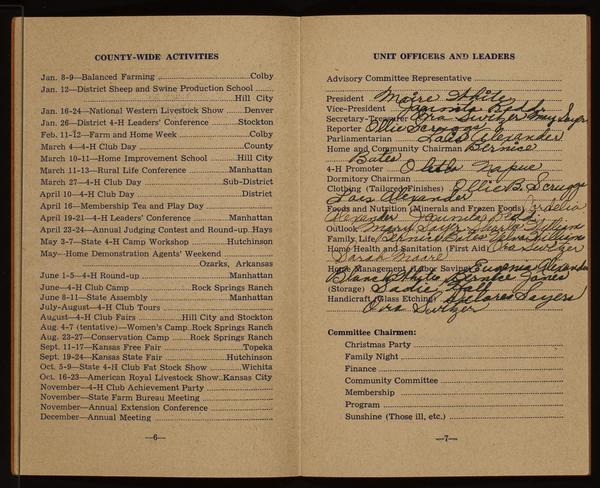 COUNTY-WIDE ACTIVITIES
Jan. 8-9—Balanced Farming ....Colby
Jan. 12—District Sheep and Swine Production School ....
....Hill City
Jan. 16-24—National Western Livestock Show ....Denver
Jan. 26—District 4-H Leaders' Conference ....Stockton
Feb. 11-12—Farm and Home Week ....Colby
March 4—4-H Club Day ....County
March 10-11—Home Improvement School ....Hill City
March 11-13—Rural Life Conference ....Manhattan
March 27—4-H Club Day ....Sub-District
April 10—4-H Club Day ....District
April 16—Membership Tea and Play Day ....
April 19-21—4-H Leaders' Conference ....Manhattan
April 23-24—Annual Judging Contest and Round-up..Hays
May 3-7—State 4-H Camp Workshop ....Hutchinson
May—Home Demonstration Agents' Weekend
....Ozarks, Arkansas
June 1-5—4-H Round-up ....Manhattan
June—4-H Club Camp ....Rock Springs Ranch
June 8-11—State Assembly ....Manhattan
July-August—4-H Club Tours ....
August—4-H Club Fairs ....Hill City and Stockton
Aug. 4-7 (tentative)—Women's Camp..Rock Springs Ranch
Aug. 23-27—Conservation Camp ....Rock Springs Ranch
Sept. 11-17—Kansas Free Fair ....Topeka
Sept. 19-24—Kansas State Fair ....Hutchinson
Oct. 5-9—State 4-H Club Fat Stock Show ....Wichita
Oct. 16-23—American Royal Livestock Show..Kansas City
November—4-H Club Achievement Party ....
November—State Farm Bureau Meeting ....
November—Annual Extension Conference ....
December—Annual Meeting ....
—6—
UNIT OFFICERS AND LEADERS
Advisory Committee Representative ....
President Moire White
Vice-President Juanita Redd
Secretary-Treasurer Ora Switzer
Reporter Ollie Scruggs
Parliamentarian Lois Alexander
Home and Community Chairman Bernice
Bates
4-H Promoter Oletha Napue
Dormitory Chairman
Clothing (Tailored Finishes) Ollie B. Scruggs
Lois Alexander
Foods and Nutrition (Minerals and Frozen Foods)
Alexander Juanita Redd
Outlook
Family Life Bernice Bates
Home Health and Sanitation (First Aid) Ora Switzer
Sarah Moore
Home Management (Labor Saving) Eugenia Alexander
Blanc White Bernice James
(Storage) Sadie
Handicraft (Glass Etching) Delores Sayers
Ora Switzer
Committee Chairmen:
Christmas Party ....
Family Night ....
Finance ....
Community Committee ....
Membership ....
Program ....
Sunshine (Those ill, etc.) ....
—7—